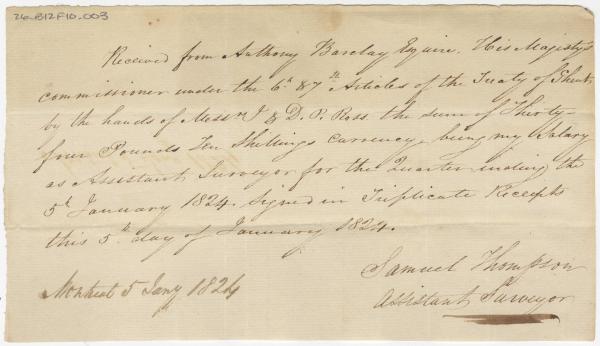 26-B12F10.003
Received from Anthony Barclay Esquire. His Majesty's
commissioner under the 6th & 7th Articles of the Treaty of Ghent
by the hands of Messrs J & D. P. Ross. the sum of Thirty-
four Pounds Ten Shillings currency, being my Salary
as Assistant Surveyor for the Quarter ending the
5th January 1824. Signed in Triplicate Receipts
this 5th day of January 1824.
Samuel Thompson
Montreal 5 Jany 1824
Assistant Surveyor